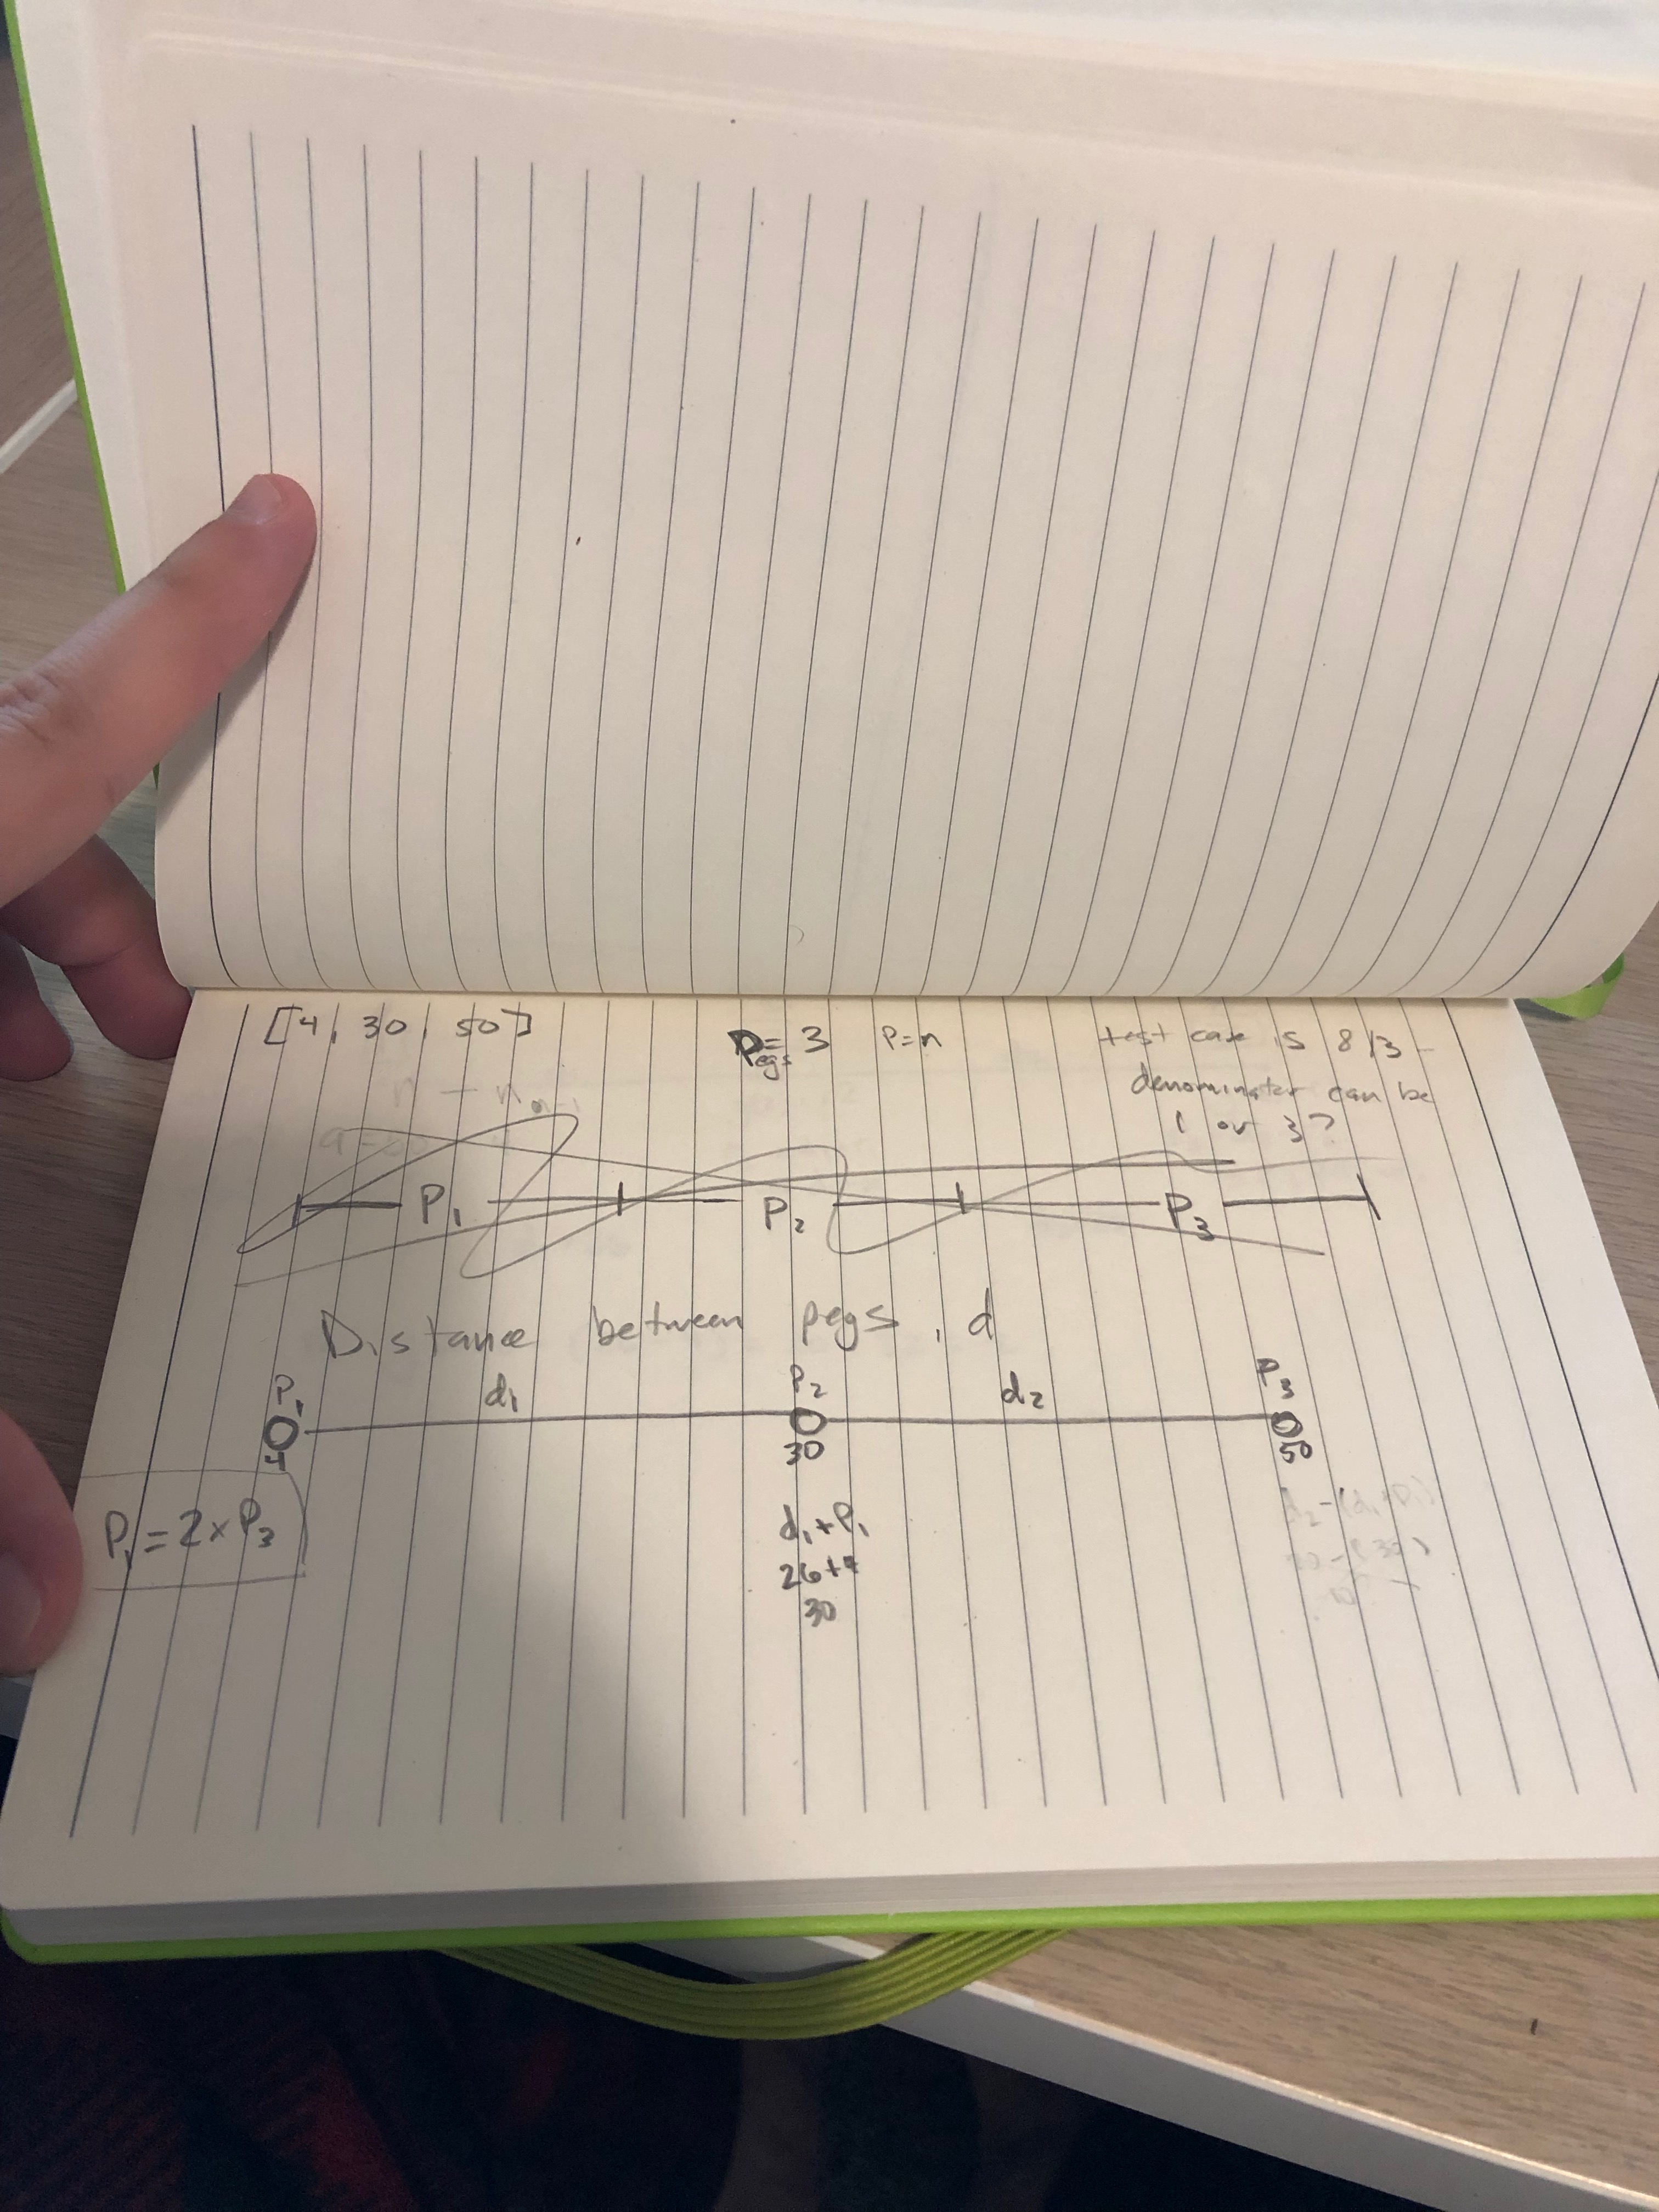 [4, 30, 50]
Pegs = 3
P=n
test case is 8/3 -
denominator can be
1 or 3?
P₁
P₂
P₃
Distance between pegs, d
P₁
d₁
P₂
d₂
P₃
4
30
50
P₁ = 2 x P₃
d₁ + P₁
26+4
30